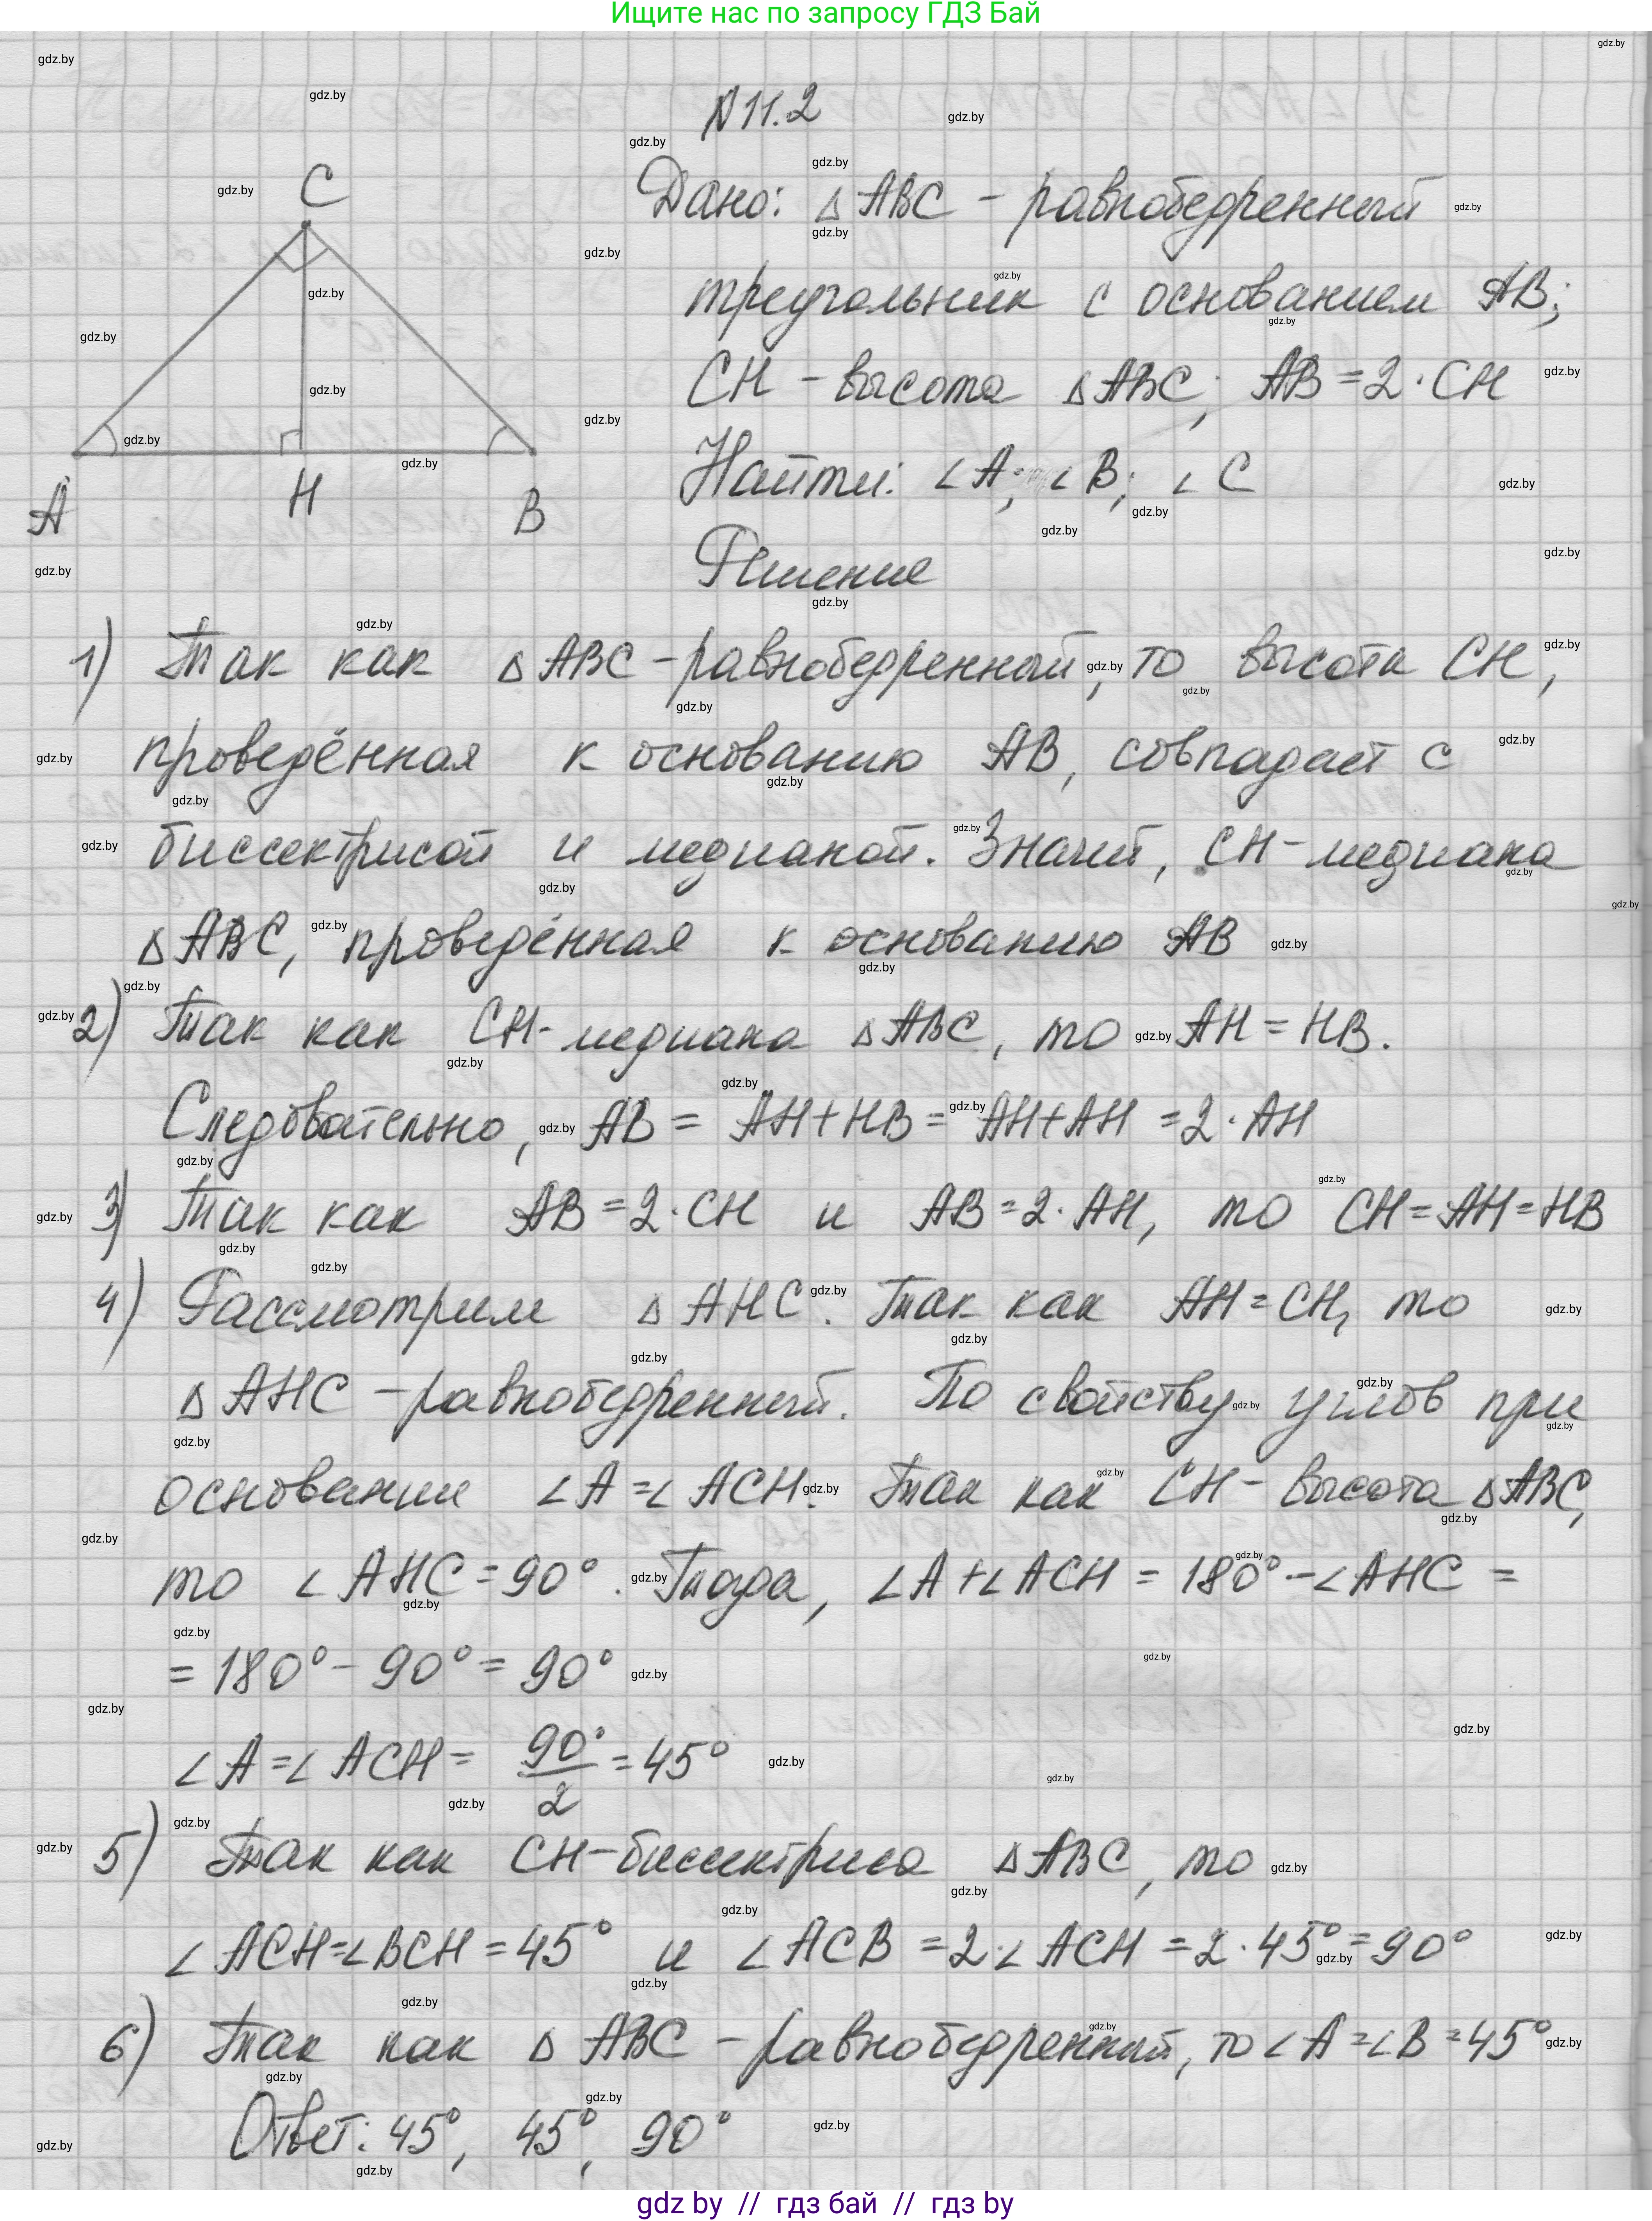 Ищите нас по запросу ГДЗ Бай
N 11.2
Дано: △ABC - равнобедренный
треугольник с основанием AB;
CH - высота △ABC; AB = 2 · CH
Найти: ∠A; ∠B; ∠C
Решение
C
A
H
B
1) Так как △ABC - равнобедренный, то высота CH,
проведённая к основанию AB, совпадает с
биссектрисой и медианой. Значит, CH - медиана
△ABC, проведённая к основанию AB
2) Так как CH - медиана △ABC, то AH = HB.
Следовательно, AB = AH + HB = AH + AH = 2 · AH
3) Так как AB = 2 · CH и AB = 2 · AH, то CH = AH = HB
4) Рассмотрим △AHC. Так как AH = CH, то
△AHC - равнобедренный. По свойству углов при
основании ∠A = ∠ACH. Так как CH - высота △ABC,
то ∠AHC = 90°. Тогда, ∠A + ∠ACH = 180° - ∠AHC =
= 180° - 90° = 90°
∠A = ∠ACH = 90°/2 = 45°
5) Так как CH - биссектриса △ABC, то
∠ACH = ∠BCH = 45° и ∠ACB = 2 · ∠ACH = 2 · 45° = 90°
6) Так как △ABC - равнобедренный, то ∠A = ∠B = 45°
Ответ: 45°, 45°, 90°
gdz by // гдз бай // гдз by